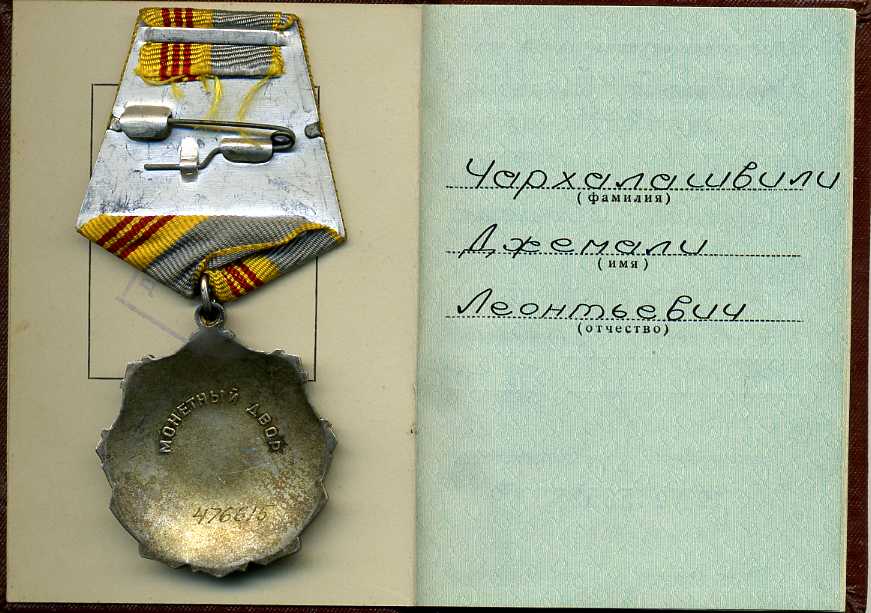 МОНЕТНЫЙ ДВОР
476615
Чархалашвили
(фамилия)
Джемали
(имя)
Леонтьевич
(отчество)